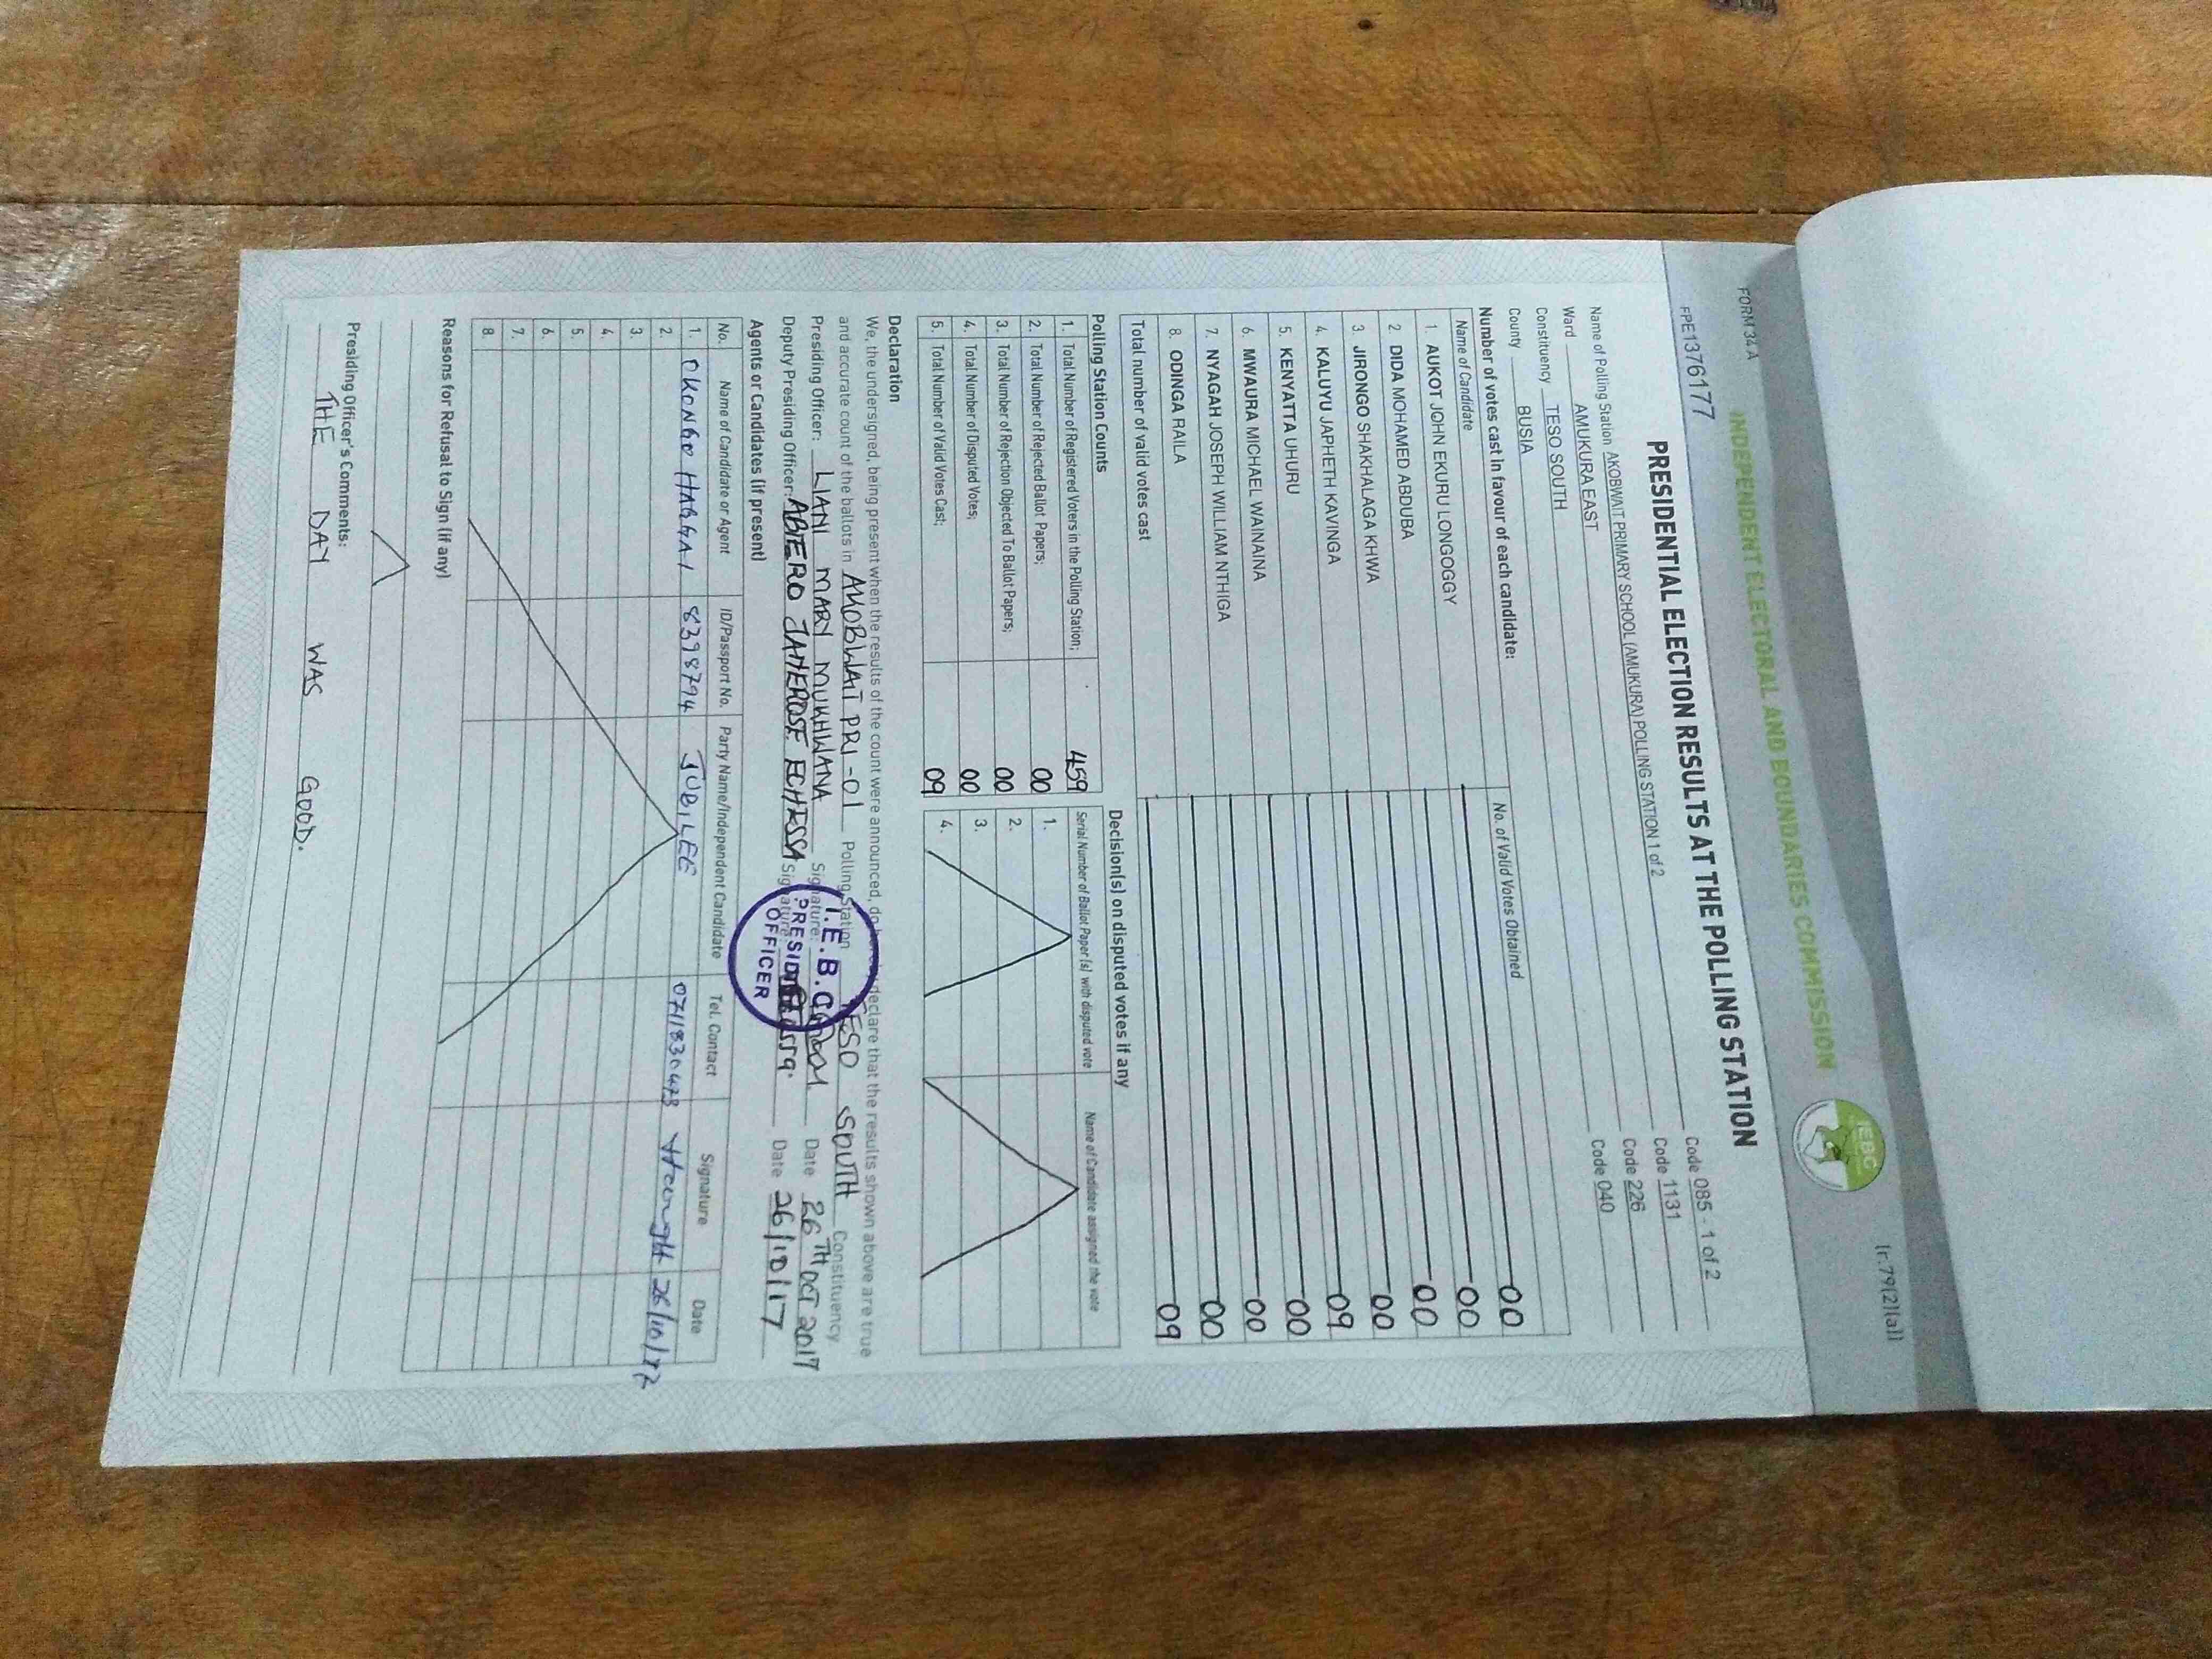 FORM 34 A
[r.79(2)(a)]
INDEPENDENT ELECTORAL AND BOUNDARIES COMMISSION
IEBC
FPE1376177
PRESIDENTIAL ELECTION RESULTS AT THE POLLING STATION
Name of Polling Station AKOBWAIT PRIMARY SCHOOL (AMUKURA) POLLING STATION 1 of 2 Code 085 - 1 of 2
Ward AMUKURA EAST Code 1131
Constituency TESO SOUTH Code 226
County BUSIA Code 040
Number of votes cast in favour of each candidate:
Name of Candidate No. of Valid Votes Obtained
1. AUKOT JOHN EKURU LONGOGGY 00
2 DIDA MOHAMED ABDUBA 00
3 JIRONGO SHAKHALAGA KHWA 00
4. KALUYU JAPHETH KAVINGA 00
5. KENYATTA UHURU 09
6. MWAURA MICHAEL WAINAINA 00
7. NYAGAH JOSEPH WILLIAM NTHIGA 00
8. ODINGA RAILA 00
Total number of valid votes cast 09
Polling Station Counts
1. Total Number of Registered Voters in the Polling Station; 459
2. Total Number of Rejected Ballot Papers; 00
3. Total Number of Rejection Objected To Ballot Papers; 00
4. Total Number of Disputed Votes; 00
5. Total Number of Valid Votes Cast; 09
Decision(s) on disputed votes if any
Serial Number of Ballot Paper (s) with disputed vote Name of Candidate assigned the vote
1.
2.
3.
4.
Declaration
We, the undersigned, being present when the results of the count were announced, do hereby declare that the results shown above are true
and accurate count of the ballots in AKOBWAIT PRI -01 Polling Station TESO SOUTH Constituency
Presiding Officer: LIANI MARY MUKHWANA Signature: Date 26TH OCT 2017
Deputy Presiding Officer: ABIERO JANEROSE ECHESSA Signature: Date 26/10/17
I.E.B.C
PRESIDING
OFFICER
Agents or Candidates (if present)
No. Name of Candidate or Agent ID/Passport No. Party Name/Independent Candidate Tel. Contact Signature Date
1. OKONGO HAGGAI 8398794 JUBILEE 0711830473 26/10/17
2.
3.
4.
5.
6.
7.
8.
Reasons for Refusal to Sign (if any)
Presiding Officer's Comments:
THE DAY WAS GOOD.